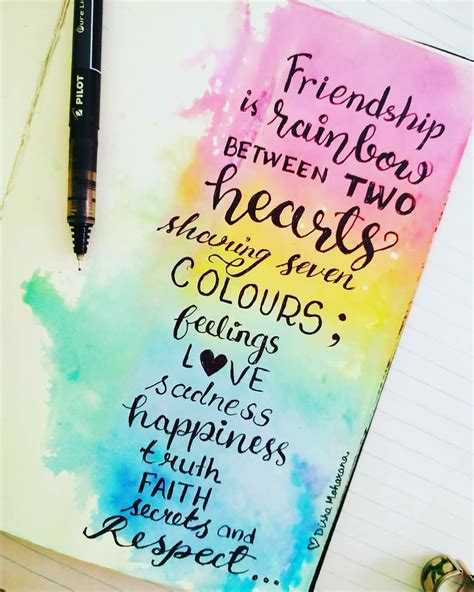 Friendship
is rainbow
BETWEEN TWO
hearts
sharing seven
COLOURS;
feelings
L♥VE
sadness
happiness
truth
FAITH
secrets and
Respect...
♡Disha Moharana
PILOT